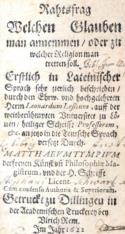 Rahtsfrag
Welchen Glauben
man annemmen / oder zu
welcher Religion man
tretten soll.
Erstlich in Lateinischer
Sprach sehr zierlich beschrieben /
durch den Ehrw. und hochgelehrten
Herrn Leonardum Lessium, auff der
weitberühmbten Universitet zu Lö-
uen / heiliger Schrifft Professorn.
an jetzo in die Teutsche Sprach
versetzt Durch
der freyen Künst uñ Philosophiæ Ma-
gistrum, und der H. Schrifft
Licent.
Cum consensu Authoris & Superiorum.
Getruckt zu Dillingen in
der Academischen Truckerey bey
Ulrich Rem.
Im Jahr
1621